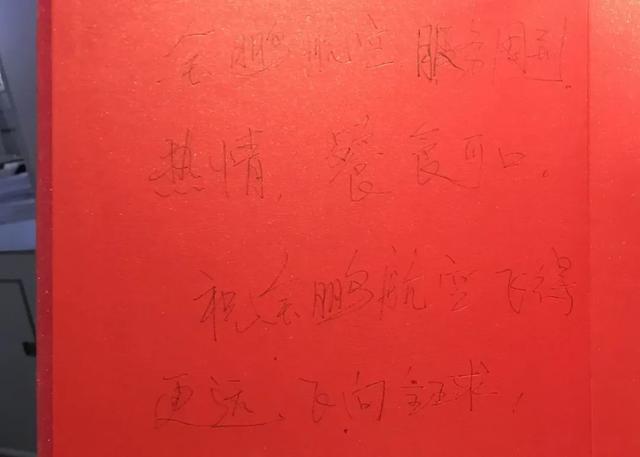 金鹏航空服务周到.
热情, 餐食可口.
祝金鹏航空飞得
更远、飞向全球,